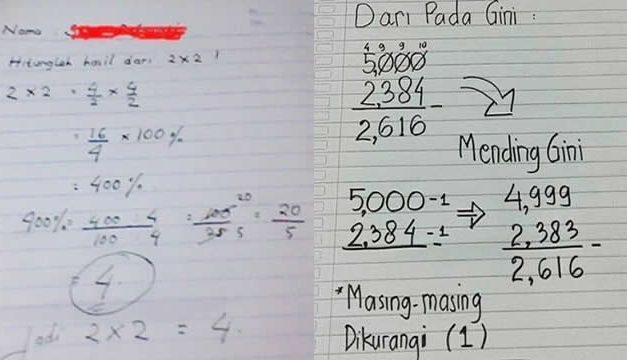 Nama :
Hitunglah hasil dari 2 x 2 !
2 x 2 = 4/2 x 4/2
= 16/4 x 100 %
= 400 %
400% = 400/100 4/4 = 100/35 20/5 = 20/5
= 4
Jadi 2 x 2 = 4.
Dari Pada Gini :
4 9 9 10
5,000
2,384 -
2,616
Mending Gini
5,000 - 1 ⇒ 4,999
2,384 - 1 2,383 -
2,616
*Masing-masing
Dikurangi (1)